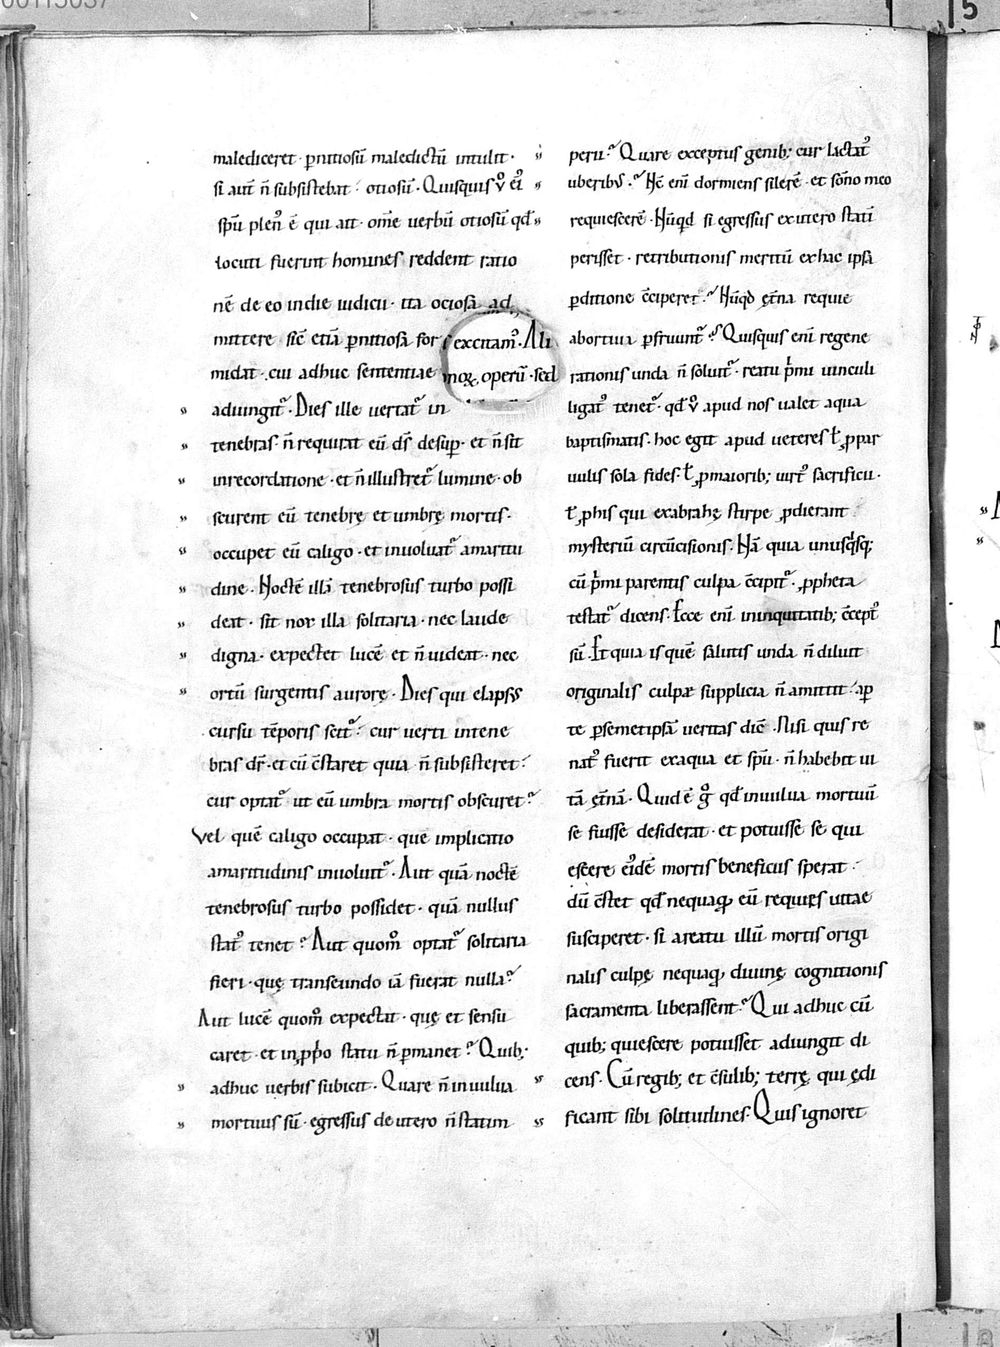 malediceret · pnitiosū maledictū intulit ·
si aut̄ n̄ subsistebat · otiosū · Quisquis ů ei᾽
spū plen᾽ ē qui ait · om̄e uerbū otiosū qd̄
locuti fuerint homines reddent ratio
nē de eo indie iudicii · ita ociosa ad
mittere sic̄ etiā pnitiosa for
midat · cui adhuc sententiae
adiungit᾽ · Dies ille uertat᾽ in
tenebras · n̄ requirat eū ds̄ desup · et n̄ sit
inrecordatione · et n̄ illustret᾽ lumine · ob
scurent eū tenebrę et umbrę mortis ·
occupet eū caligo · et inuoluat᾽ amaritu
dine · Noctē illā tenebrosus turbo possi
deat · sit nox illa solitaria · nec laude
digna · expectet lucē et n̄ uideat · nec
ortū surgentis aurorę · Dies qui elapsus
cursu tēporis scit᾽ · cur uerti intene
bras dr̄ · et cū c̄staret quia n̄ subsisteret ·
cur optat᾽ ut eū umbra mortis obscuret ·
Vel quē caligo occupat · quę implicatio
amaritudinis inuoluit᾽ · Aut quā noctē
tenebrosus turbo possidet · quā nullus
stat᾽ tenet · Aut quom̊ optat᾽ solitaria
fieri · quę transeundo iā fuerat nulla ·
Aut lucē quom̊ expectat · quę et sensu
caret · et in ꝓpo statu n̄ pmanet · Quib;
adhuc uerbis subicit · Quare n̄ in uulua
mortuus sū · egressus de utero n̄ statim
excitam᾽ · Ali
moꝝ operū · sed
perii · Quare exceptus genib; cur lactat᾽
uberibus · Nc̄ enī dormiens silerē · et sōno meo
requiescerē · Nūqd si egressus ex utero statī
perisset · retributionis meritū ex hac ipsa
pditione c̄ciperet · Nūqd ęt̄na requie
abortiua pfruunt᾽ · Quisquis enī regene
rationis unda n̄ soluit᾽ · reatu pmi uinculi
ligat᾽ tenet᾽ · qd̄ ů apud nos ualet aqua
baptismatis · hoc egit apud ueteres ł ꝓ par
uulis sola fides · ł ꝓ maiorib; uirt᾽ sacrificii ·
ł ꝓ his qui ex abrahę stirpe ꝓdierant
mysteriū circūcisionis · Nā quia unusqsq;
cū pmi parentis culpa c̄cipit᾽ · ꝓpheta
testat᾽ dicens · Ecce enī in iniquitatib; c̄cept᾽
sū · Et quia is quē salutis unda n̄ diluit
originalis culpae supplicia n̄ amittit · ap
te p semetipsā ueritas dic̄ · Nisi quis re
nat᾽ fuerit ex aqua et spū · n̄ habebit ui
tā ęt̄nā · Quid ē g̊ qd̄ in uulua mortuū
se fuisse desiderat · et potuisse se qui
escere ei᾽dē mortis beneficus sperat ·
dū c̄stet qd̄ nequaq̄ eū requies uitae
susciperet · si a reatu illū mortis origi
nalis culpę nequaq̄ diuinę cognitionis
sacramenta liberassent · Qui adhuc cū
quib; quiescere potuisset adiungit di
cens · Cū regib; et c̄sulib; terrę qui ędi
ficant sibi solitudines · Quis ignoret